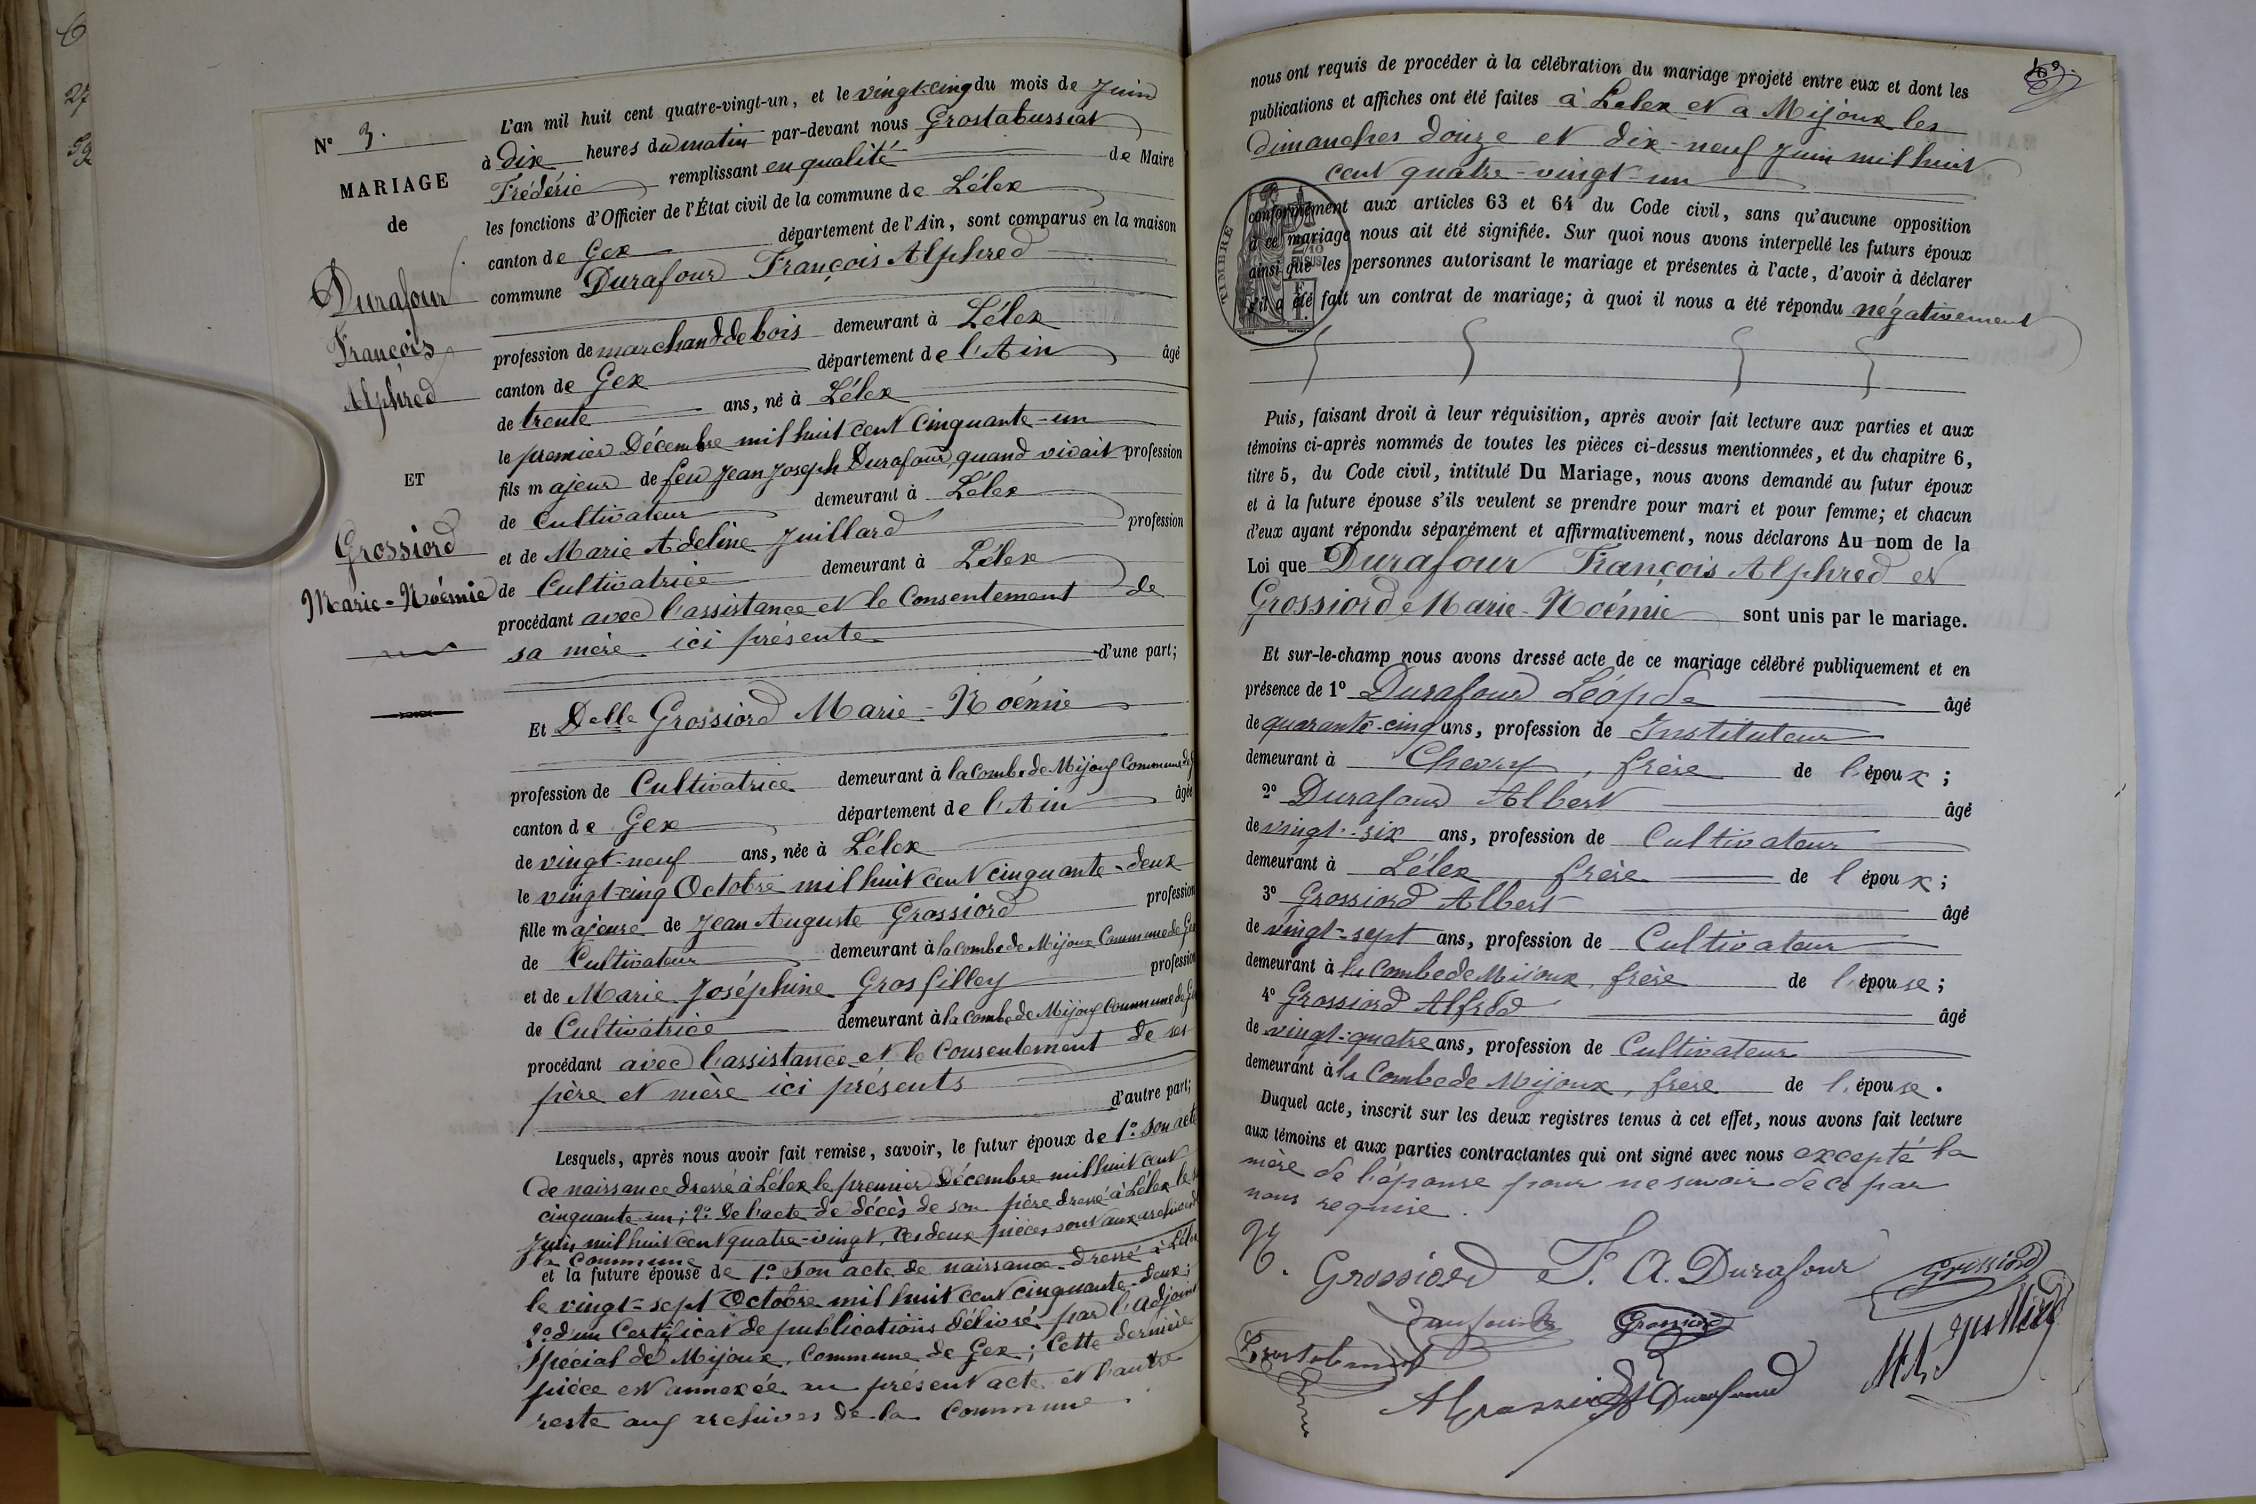 N° 3.
MARIAGE
de
Durafour
François
Alphred
ET
Grossiord
Marie-Noémie
L'an mil huit cent quatre-vingt-un, et le vingt-cinq du mois de Juin
à dix heures du matin par-devant nous Grostabussiat
Frédéric remplissant en qualité de Maire
les fonctions d'Officier de l'État civil de la commune de Lélex
canton de Gex département de l'Ain, sont comparus en la maison
commune Durafour François Alphred
profession de marchand de bois demeurant à Lélex
canton de Gex département de l'Ain âgé
de trente ans, né à Lélex
le premier Décembre mil huit cent cinquante-un
fils majeur de feu Jean Joseph Durafour, quand vivait profession
de Cultivateur demeurant à Lélex
et de Marie Adeline Juillard profession
de Cultivatrice demeurant à Lélex
procédant avec l'assistance et le Consentement de
sa mère ici présente
d'une part;
Et Delle Grossiord Marie-Noémie
profession de Cultivatrice demeurant à la Combe de Mijoux Commune de
canton de Gex département de l'Ain âgée
de vingt-neuf ans, née à Lélex
le vingt-cinq Octobre mil huit cent cinquante-deux
fille majeure de Jean Auguste Grossiord profession
de Cultivateur demeurant à la combe de Mijoux Commune de
et de Marie Joséphine Grosfilley profession
de Cultivatrice demeurant à la Combe de Mijoux Commune de
procédant avec l'assistance et le Consentement de ses
père et mère ici présents
d'autre part;
Lesquels, après nous avoir fait remise, savoir, le futur époux de 1° Son acte
de naissance dressé à Lélex le premier Décembre mil huit cent
cinquante-un; 2° De l'acte de décès de son père dressé à Lélex le
Juin mil huit cent quatre-vingt, Ces deux pièces sont aux archives de
la Commune
et la future épouse de 1° Son acte de naissance dressé à Lélex
le vingt-sept Octobre mil huit cent cinquante-deux;
2° d'un Certificat de publications délivré par l'Adjoint
Spécial de Mijoux, Commune de Gex; Cette dernière
pièce est annexée au présent acte et l'autre
reste aux archives de la Commune
nous ont requis de procéder à la célébration du mariage projeté entre eux et dont les
publications et affiches ont été faites à Lelex et a Mijoux les
dimanches douze et dix-neuf Juin mil huit
cent quatre-vingt-un
conformément aux articles 63 et 64 du Code civil, sans qu'aucune opposition
à ce mariage nous ait été signifiée. Sur quoi nous avons interpellé les futurs époux
ainsi que les personnes autorisant le mariage et présentes à l'acte, d'avoir à déclarer
s'il a été fait un contrat de mariage; à quoi il nous a été répondu négativement
TIMBRE
2/10
EN SUS
Puis, faisant droit à leur réquisition, après avoir fait lecture aux parties et aux
témoins ci-après nommés de toutes les pièces ci-dessus mentionnées, et du chapitre 6,
titre 5, du Code civil, intitulé Du Mariage, nous avons demandé au futur époux
et à la future épouse s'ils veulent se prendre pour mari et pour femme; et chacun
d'eux ayant répondu séparément et affirmativement, nous déclarons Au nom de la
Loi que Durafour François Alphred et
Grossiord Marie-Noémie sont unis par le mariage.
Et sur-le-champ nous avons dressé acte de ce mariage célébré publiquement et en
présence de 1° Durafour Léopde âgé
de quarante-cinq ans, profession de Instituteur
demeurant à Chevry, frère de l'époux;
2° Durafour Albert âgé
de vingt-six ans, profession de Cultivateur
demeurant à Lélex frère de l'époux;
3° Grossiord Albert âgé
de vingt-sept ans, profession de Cultivateur
demeurant à la Combe de Mijoux, frère de l'épouse;
4° Grossiord Alfred âgé
de vingt-quatre ans, profession de Cultivateur
demeurant à la Combe de Mijoux, frère de l'épouse.
Duquel acte, inscrit sur les deux registres tenus à cet effet, nous avons fait lecture
aux témoins et aux parties contractantes qui ont signé avec nous excepté la
mère de l'épouse pour ne savoir de ce par
nous requise.
N. Grossiord F. A. Durafour Grossiord
Grossiord
M A Juillard
Durafour